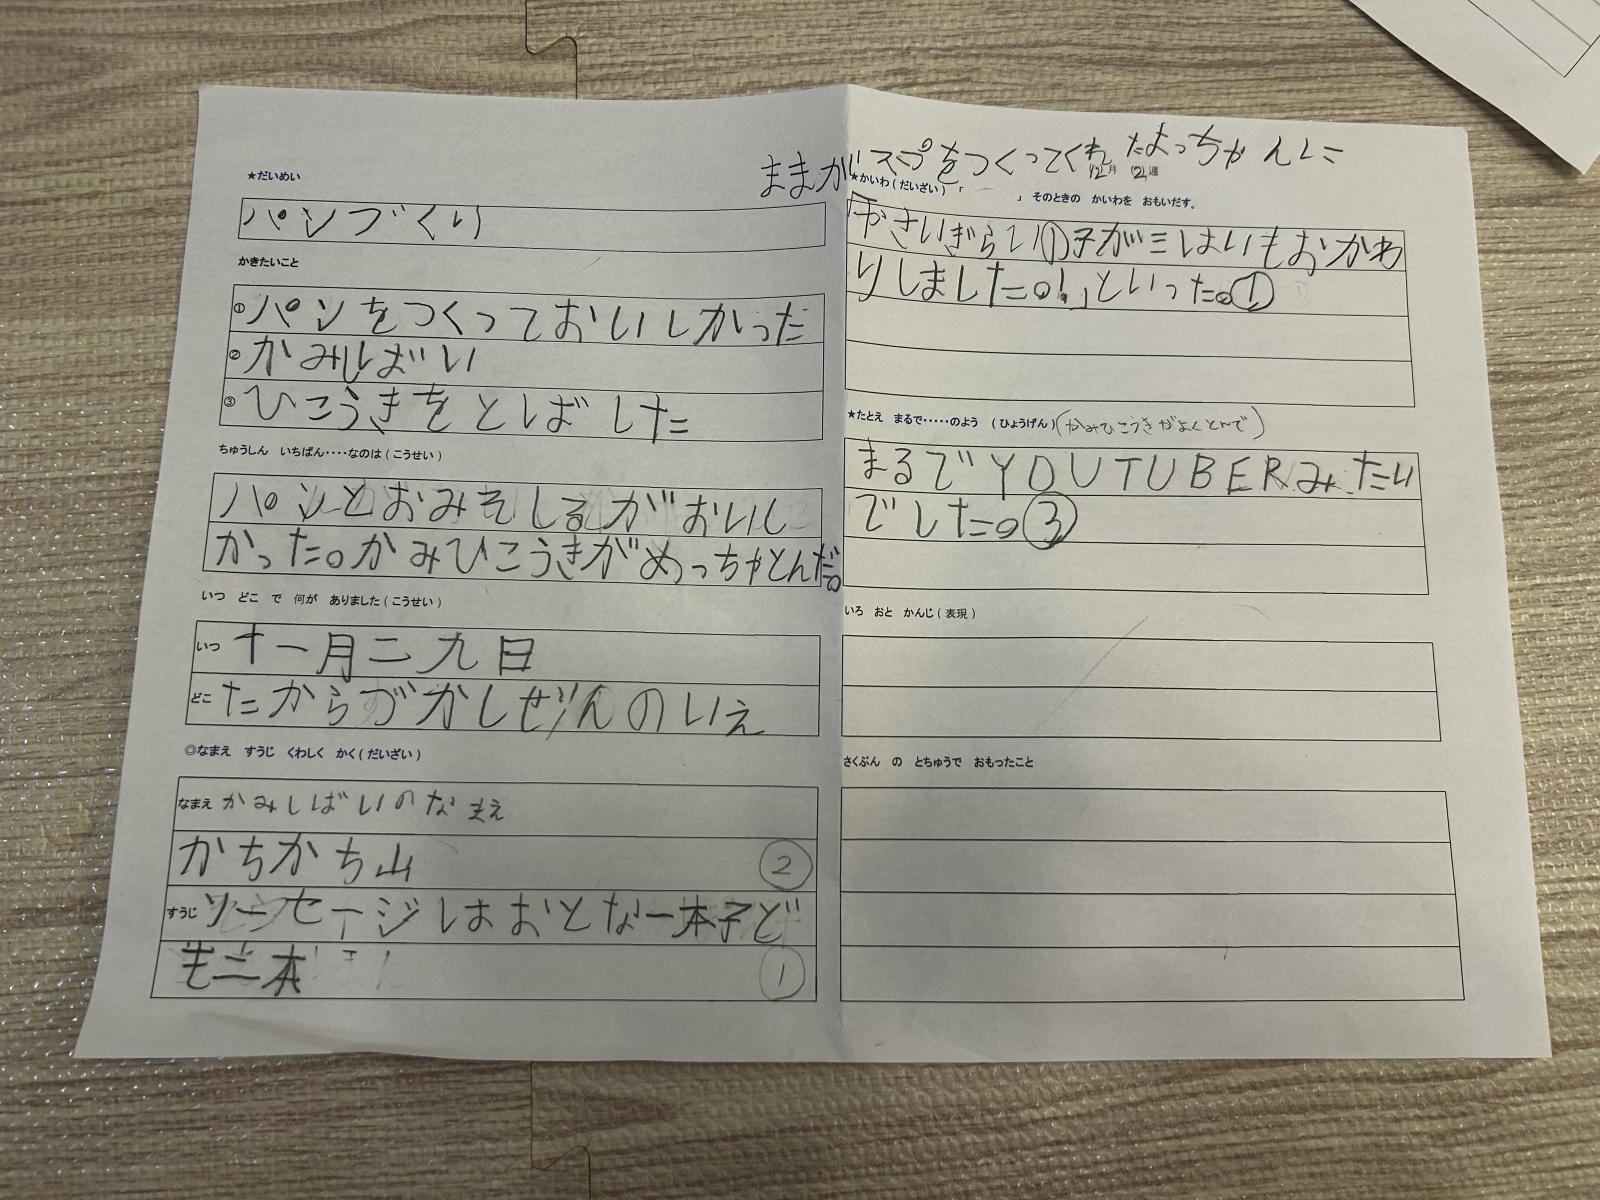 ★だいめい
パンづくり
かきたいこと
①パンをつくっておいしかった
②かみしばい
③ひこうきをとばした
ちゅうしん いちばん‥‥なのは(こうせい)
パンとおみそしるがおいし
かった。かみひこうきがめっちゃとんだ。
いつ どこ で 何が ありました(こうせい)
いつ 十一月二九日
どこ たからづかしぜんのいえ
◎なまえ すうじ くわしく かく(だいざい)
なまえ かみしばいのなまえ
かちかち山 ②
すうじ ソーセージはおとな一本子ど
も二本 ①
ままがスープをつくってくれたよっちゃんに
(12)月 (2)週
★かいわ(だいざい)「 」そのときの かいわを おもいだす。
「やさいぎらいの子が三ばいもおかわ
りしました。!」といった。①
★たとえ まるで‥‥‥のよう (ひょうげん)(かみひこうきがよくとんで)
まるでYOUTUBERみたい
でした。③
いろ おと かんじ(表現)
さくぶん の とちゅうで おもったこと